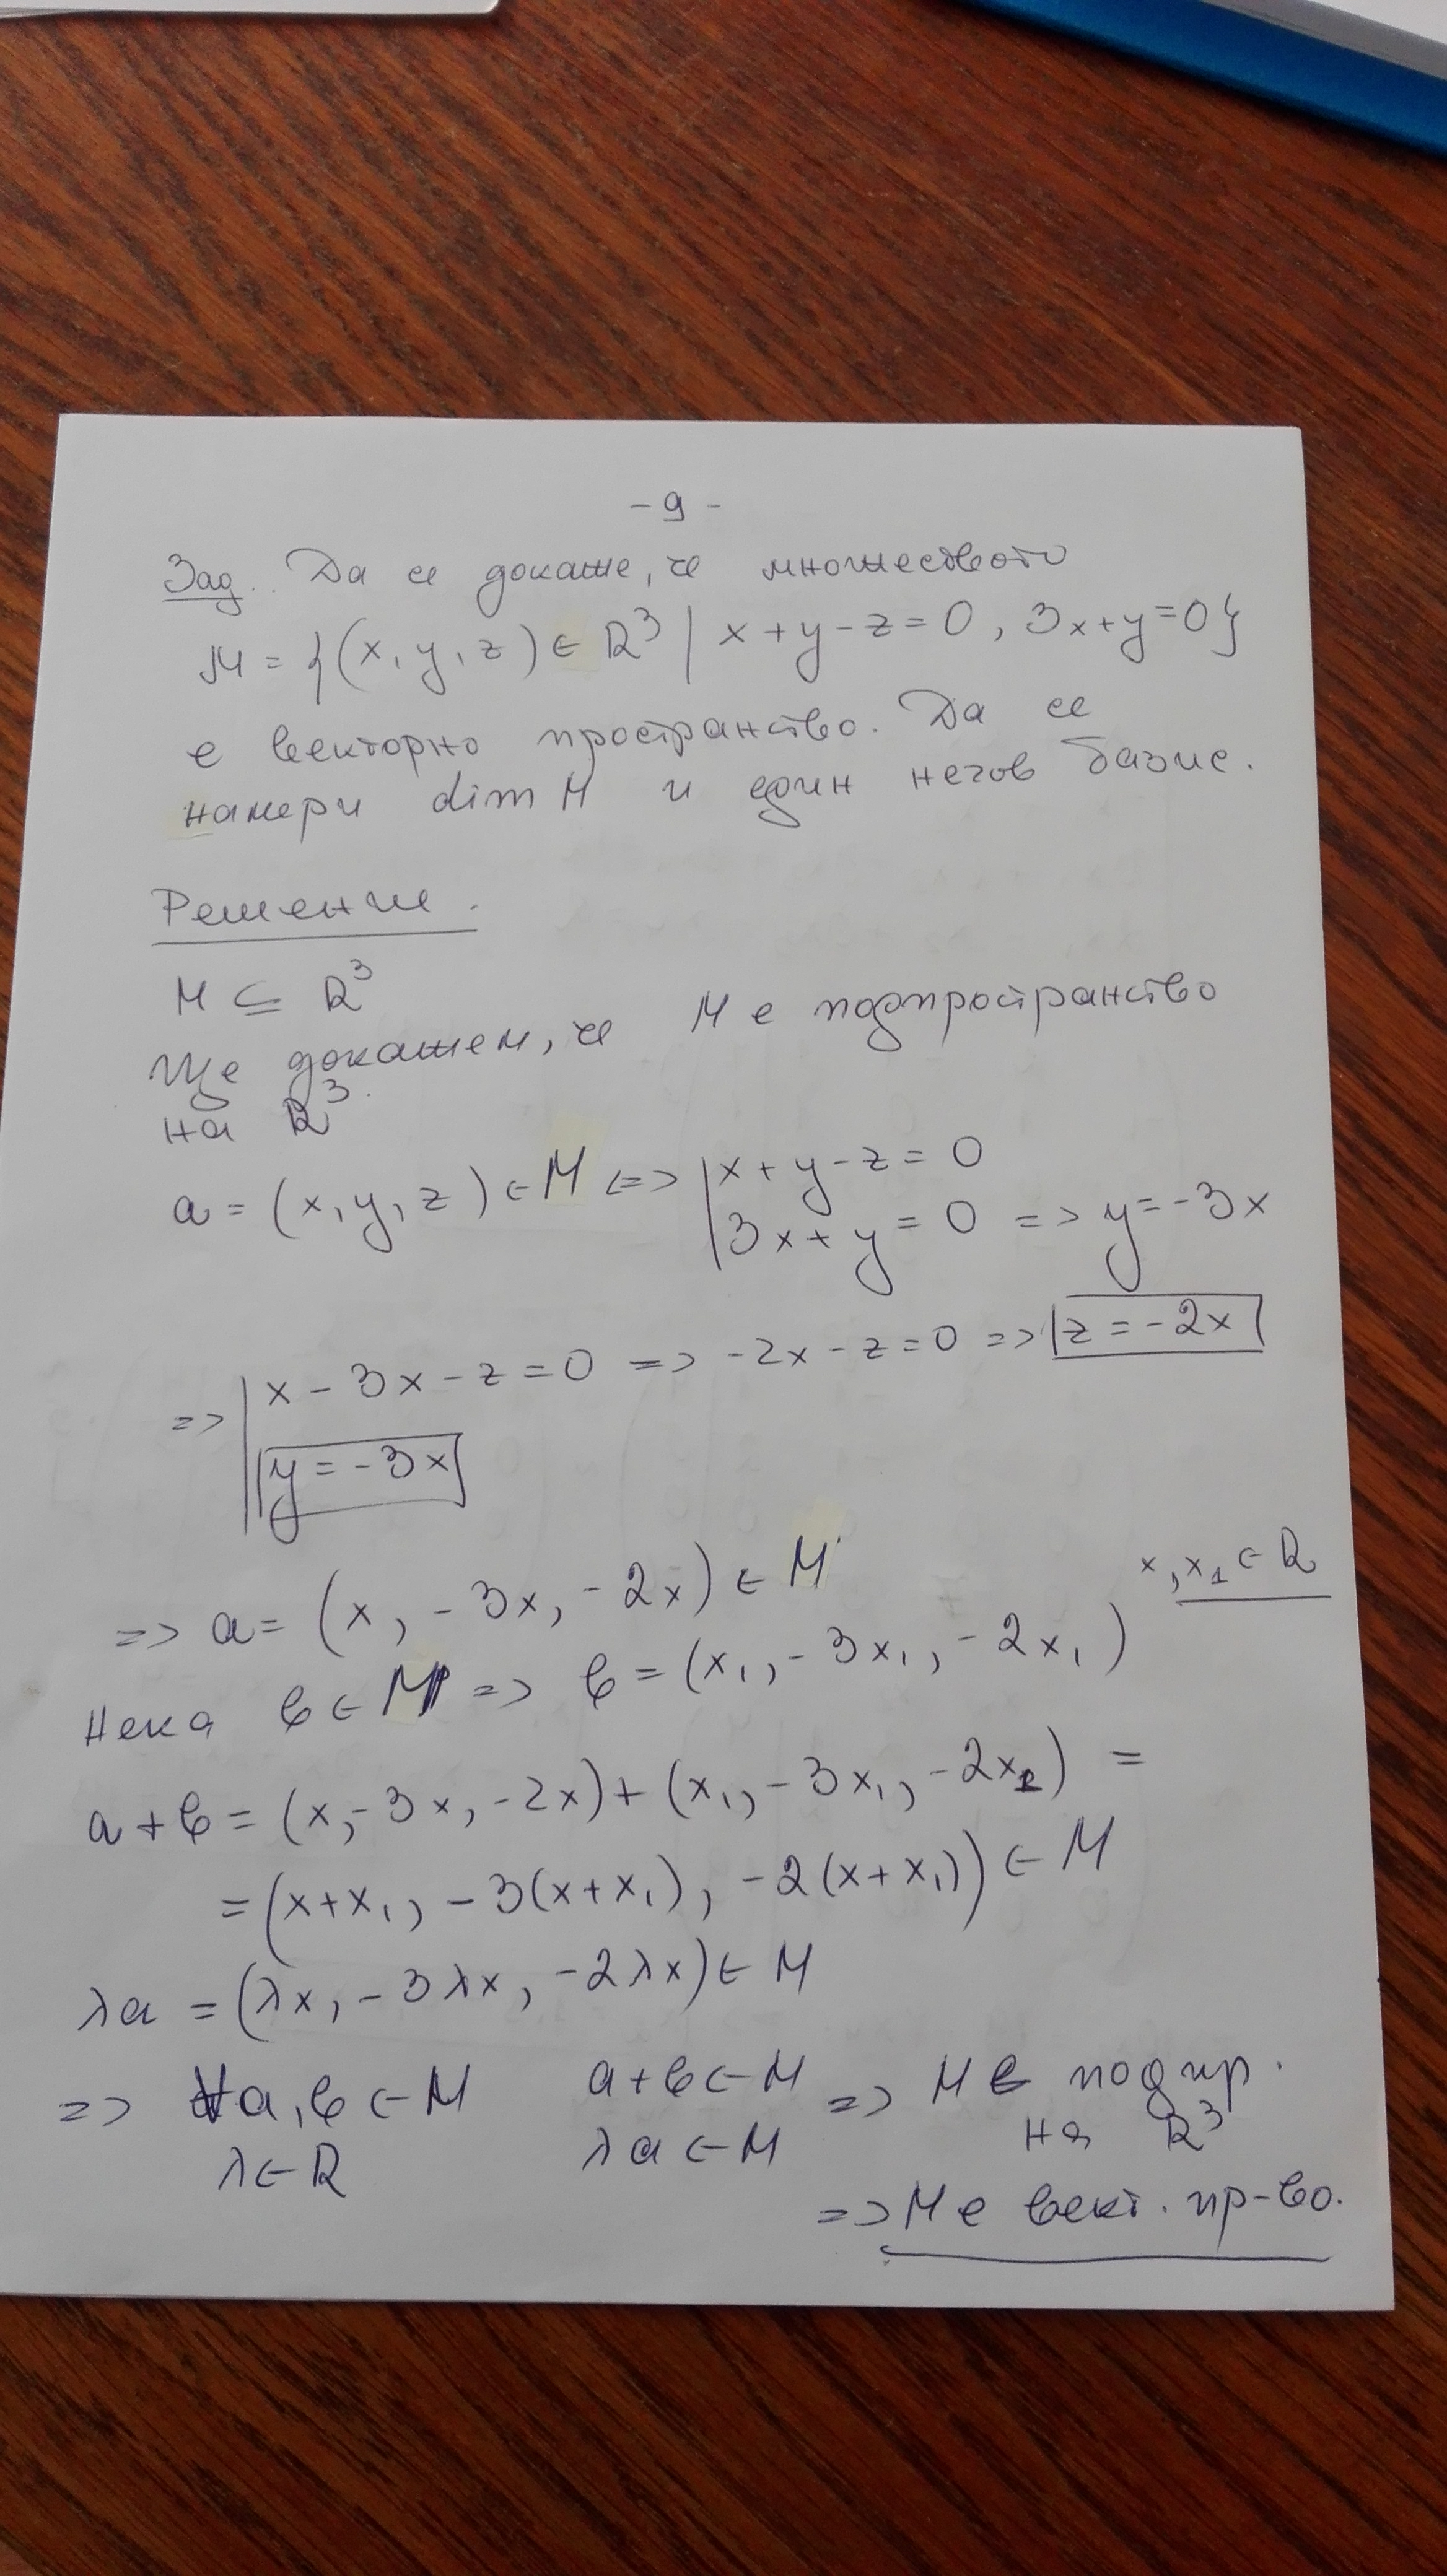 - 9 -
Зад. Да се докаже, че множеството
M = {(x, y, z) ∈ R³ | x + y - z = 0, 3x + y = 0}
е векторно пространство. Да се
намери dim M и един негов базис.
Решение.
M ⊆ R³
Ще докажем, че M е подпространство
на R³.
a = (x, y, z) ∈ M <=> | x + y - z = 0
| 3x + y = 0 => y = -3x
=> | x - 3x - z = 0 => -2x - z = 0 => z = -2x
| y = -3x
=> a = (x, -3x, -2x) ∈ M x, x₁ ∈ R
Нека b ∈ M => b = (x₁, -3x₁, -2x₁)
a + b = (x, -3x, -2x) + (x₁, -3x₁, -2x₁) =
= (x + x₁, -3(x + x₁), -2(x + x₁)) ∈ M
λa = (λx, -3λx, -2λx) ∈ M
=> ∀a, b ∈ M a + b ∈ M => M е подпр.
λ ∈ R λa ∈ M на R³
=> M е вект. пр-во.